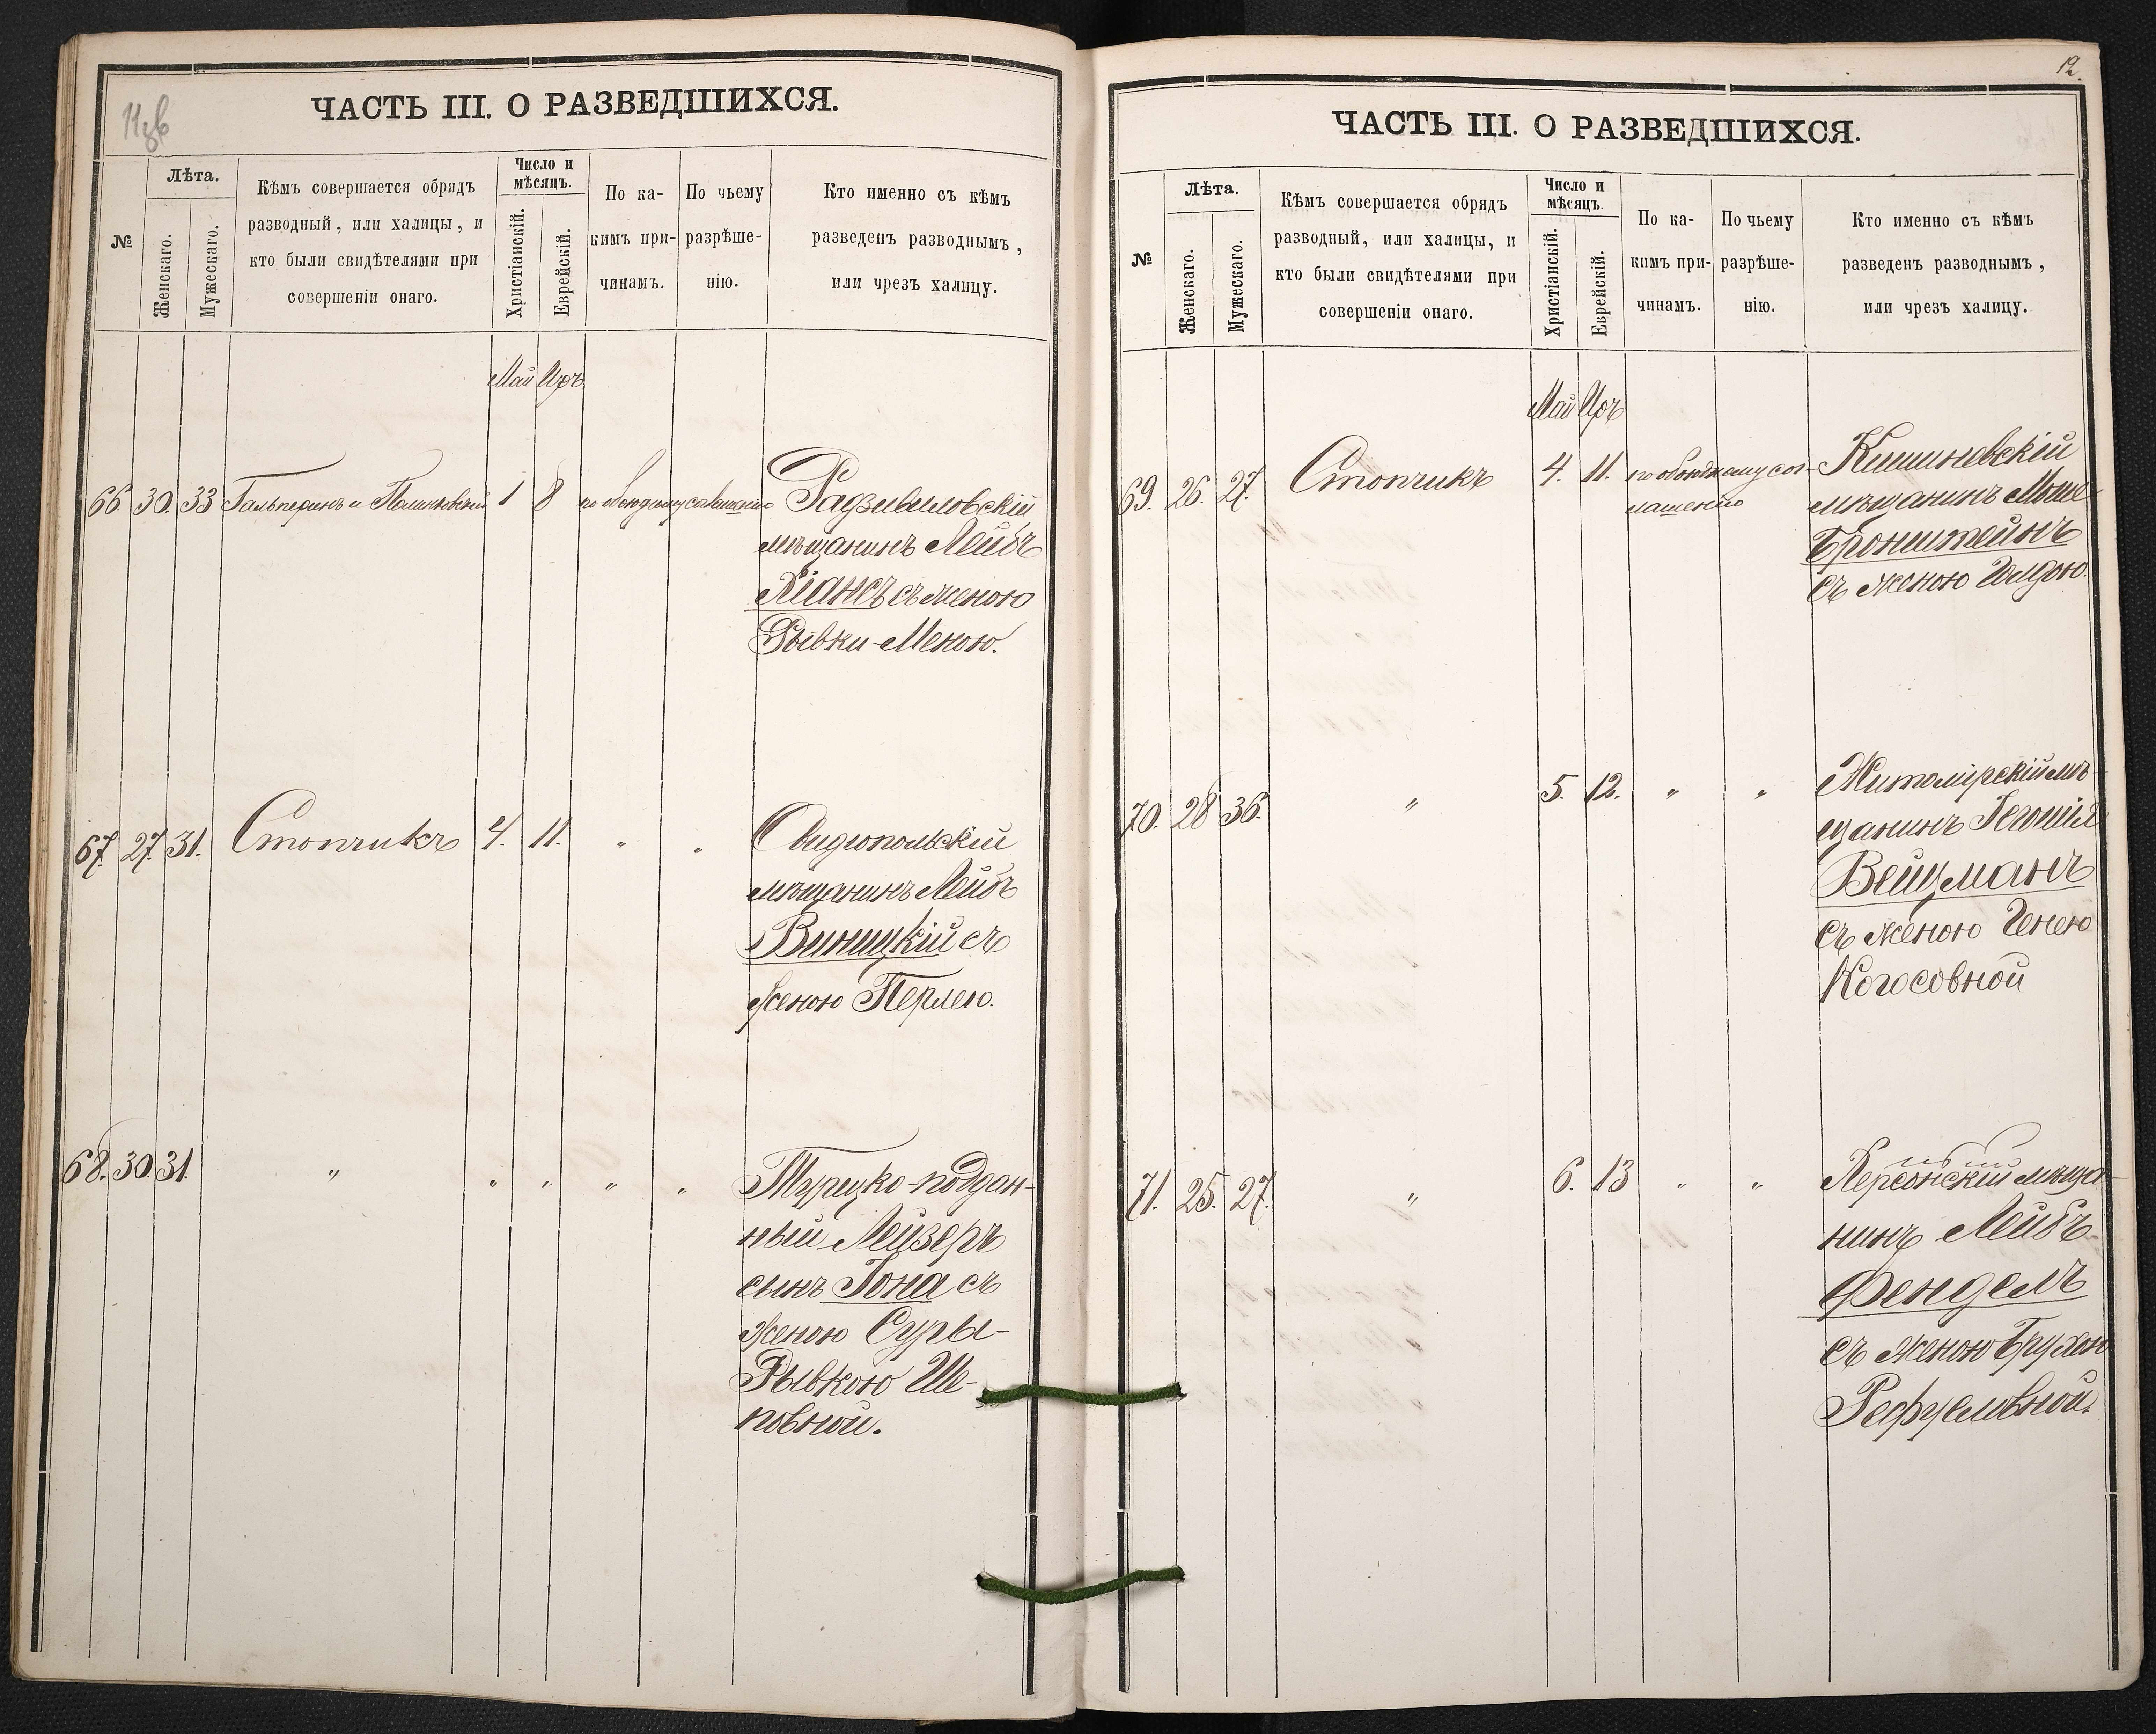 11об
ЧАСТЬ III. О РАЗВЕДШИХСЯ.
№
Лѣта.
Женскаго.
Мужескаго.
Кѣмъ совершается обрядъ
разводный, или халицы, и
кто были свидѣтелями при
совершеніи онаго.
Число и
мѣсяцъ.
Христіанскій.
Еврейскій.
По ка-
кимъ при-
чинамъ.
По чьему
разрѣше-
нію.
Кто именно съ кѣмъ
разведенъ разводнымъ,
или чрезъ халицу.
Май Іяръ
66 30. 33 Гальперинъ и 1 8 по обоюдному соглашенію
Радзивиловскій
мѣщанинъ Лейбъ
съ женою
Рывки-Меною.
67. 27. 31. Столчикъ 4. 11. " "
Овидіопольскій
мѣщанинъ Лейбъ
Виницкій съ
женою Перлею.
68. 30. 31. " " " " "
Турецко-поддан-
ный Лейзеръ
сынъ Іона съ
женою Суры-
Рывкою Ше-
повной.
12.
ЧАСТЬ III. О РАЗВЕДШИХСЯ.
№
Лѣта.
Женскаго.
Мужескаго.
Кѣмъ совершается обрядъ
разводный, или халицы, и
кто были свидѣтелями при
совершеніи онаго.
Число и
мѣсяцъ.
Христіанскій.
Еврейскій.
По ка-
кимъ при-
чинамъ.
По чьему
разрѣше-
нію.
Кто именно съ кѣмъ
разведенъ разводнымъ,
или чрезъ халицу.
Май Іяръ
69. 26. 27. Столчикъ 4. 11. по обоюдному сог-
лашенію
Кишиневскій
мѣщанинъ Мошко
Бронштейнъ
съ женою Голдою.
70. 28 36. " 5. 12. " "
Житомірскій мѣ-
щанинъ
Вейцманъ
съ женою Генею
71. 25. 27. " 6. 13 " "
Херсонскій мѣща-
нинъ Лейбъ
Фендель
съ женою Брухою